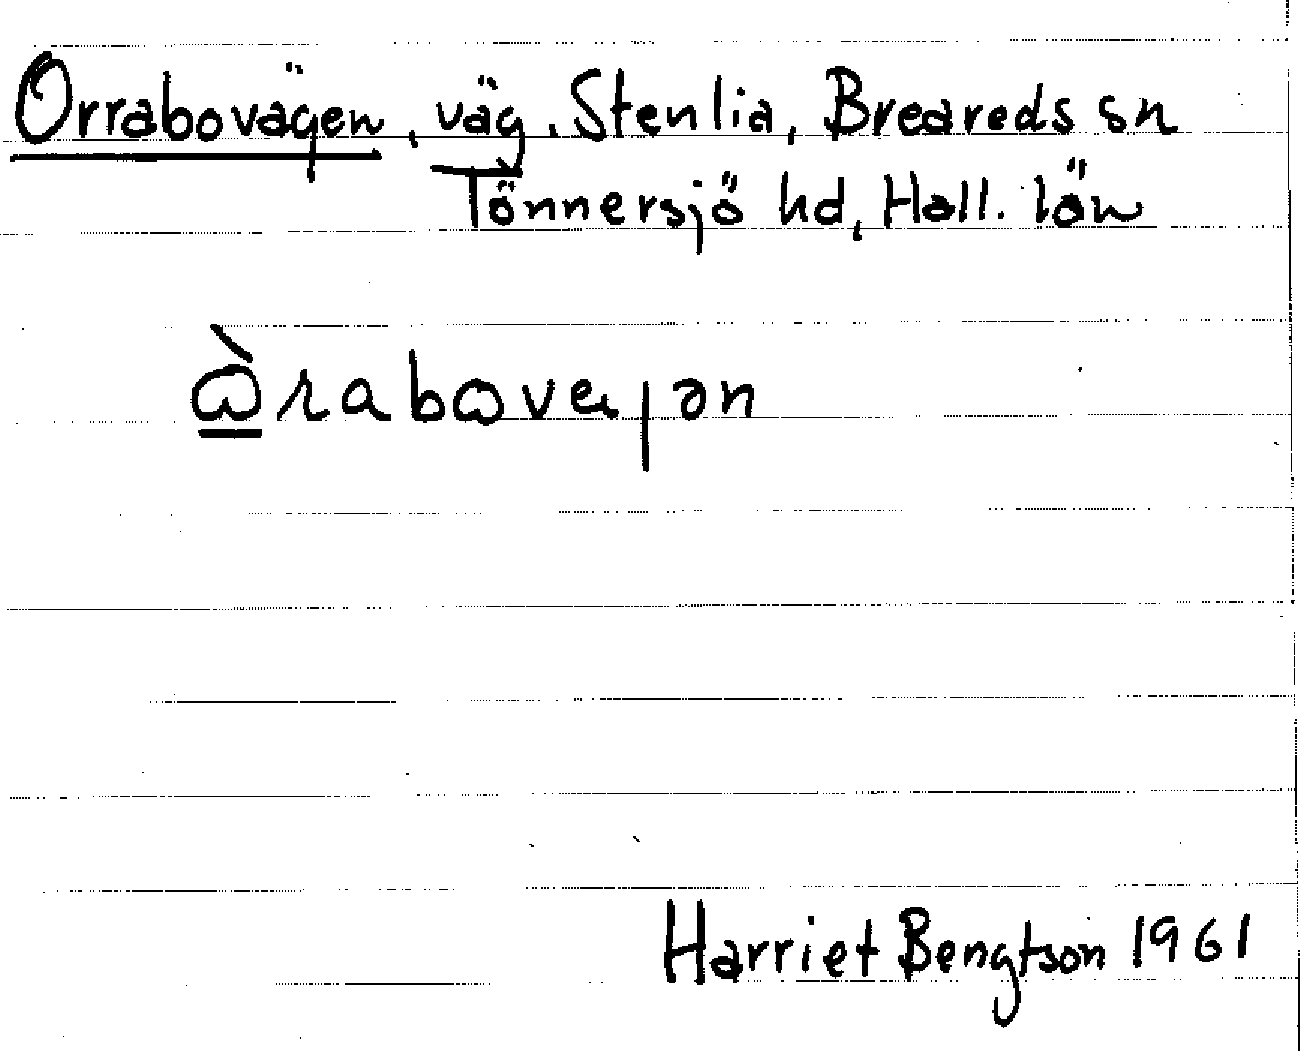 Orrabovägen, väg, Stenlia, Breareds sn
Tönnersjö hd, Hall. län
Harriet Bengtson 1961